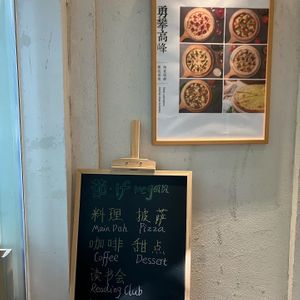 勇攀高峰
vegan
料理 披萨
Main Dish Pizza
咖啡 甜点
Coffee Dessert
读书会
Reading Club